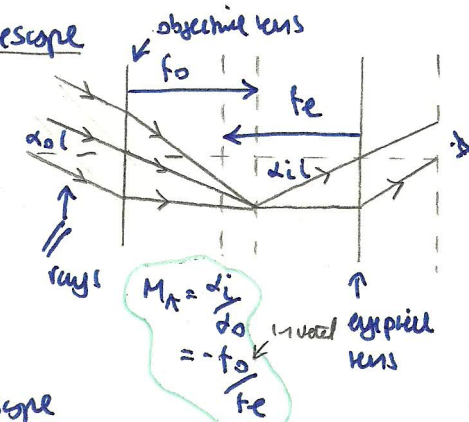 escope
objective lens
fo
fe
αol
αil
// rays
MA = αi/αo
= -fo/fe
inverted
eyepiece lens
scope